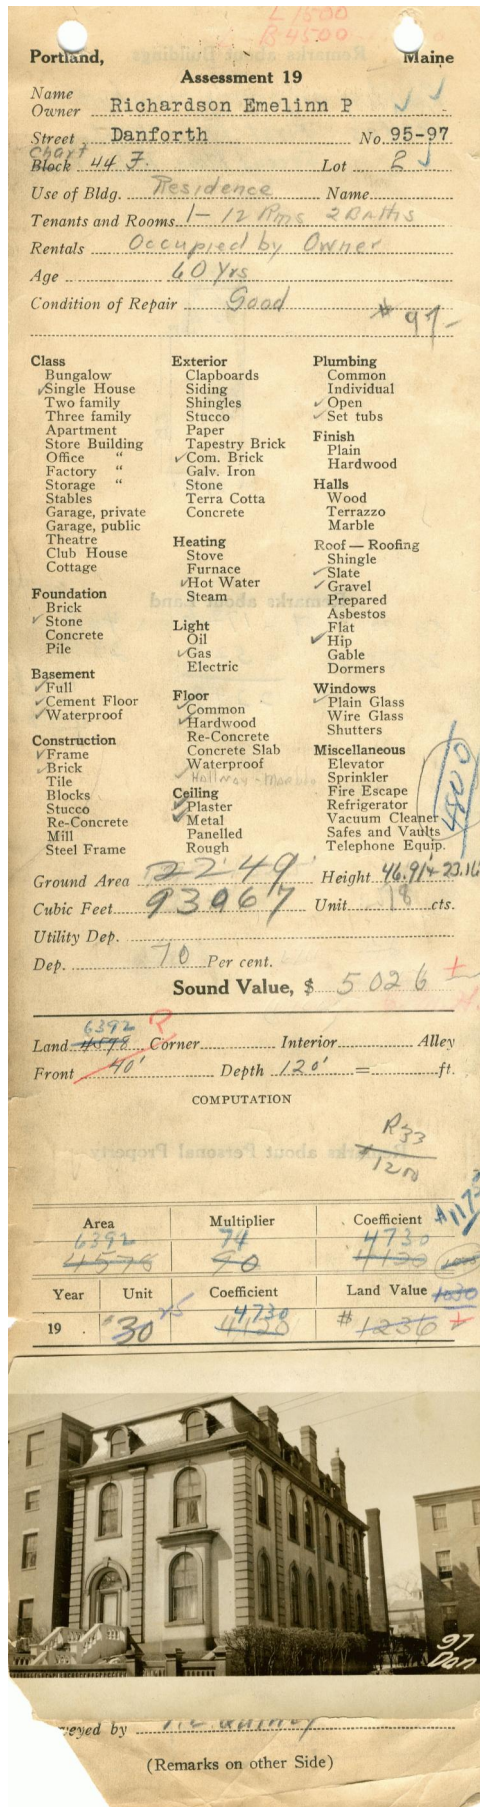 L 1500
B 4500
Portland, Maine
Assessment 19
Name
Owner Richardson Emelinn P
Street Danforth No. 95-97
Chart
Block 44 F. Lot 2
Use of Bldg. Residence Name
Tenants and Rooms 1- 12 Rms 2 Baths
Rentals Occupied by Owner
Age 60 Yrs
Condition of Repair Good
# 97-
Class
Bungalow
Single House
Two family
Three family
Apartment
Store Building
Office "
Factory "
Storage "
Stables
Garage, private
Garage, public
Theatre
Club House
Cottage
Foundation
Brick
Stone
Concrete
Pile
Basement
Full
Cement Floor
Waterproof
Construction
Frame
Brick
Tile
Blocks
Stucco
Re-Concrete
Mill
Steel Frame
Exterior
Clapboards
Siding
Shingles
Stucco
Paper
Tapestry Brick
Com. Brick
Galv. Iron
Stone
Terra Cotta
Concrete
Heating
Stove
Furnace
Hot Water
Steam
Light
Oil
Gas
Electric
Floor
Common
Hardwood
Re-Concrete
Concrete Slab
Waterproof
Hallway - Marble
Ceiling
Plaster
Metal
Panelled
Rough
Plumbing
Common
Individual
Open
Set tubs
Finish
Plain
Hardwood
Halls
Wood
Terrazzo
Marble
Roof — Roofing
Shingle
Slate
Gravel
Prepared
Asbestos
Flat
Hip
Gable
Dormers
Windows
Plain Glass
Wire Glass
Shutters
Miscellaneous
Elevator
Sprinkler
Fire Escape
Refrigerator
Vacuum Cleaner
Safes and Vaults
Telephone Equip.
4800
Ground Area 2249 Height 46.91+23.16
Cubic Feet 93967 Unit 18 cts.
Utility Dep.
Dep. 70 Per cent.
Sound Value, $ 5026 ±
6392
Land 4898 Corner Interior Alley
Front 40' Depth 120' = ft.
COMPUTATION
R 33
1200
Area Multiplier Coefficient
6392 74 4730
4576 90 4120
Year Unit Coefficient Land Value 1030
25 4730
19 . 30 4120 # 1236 ±
97
Dan
veyed by
(Remarks on other Side)